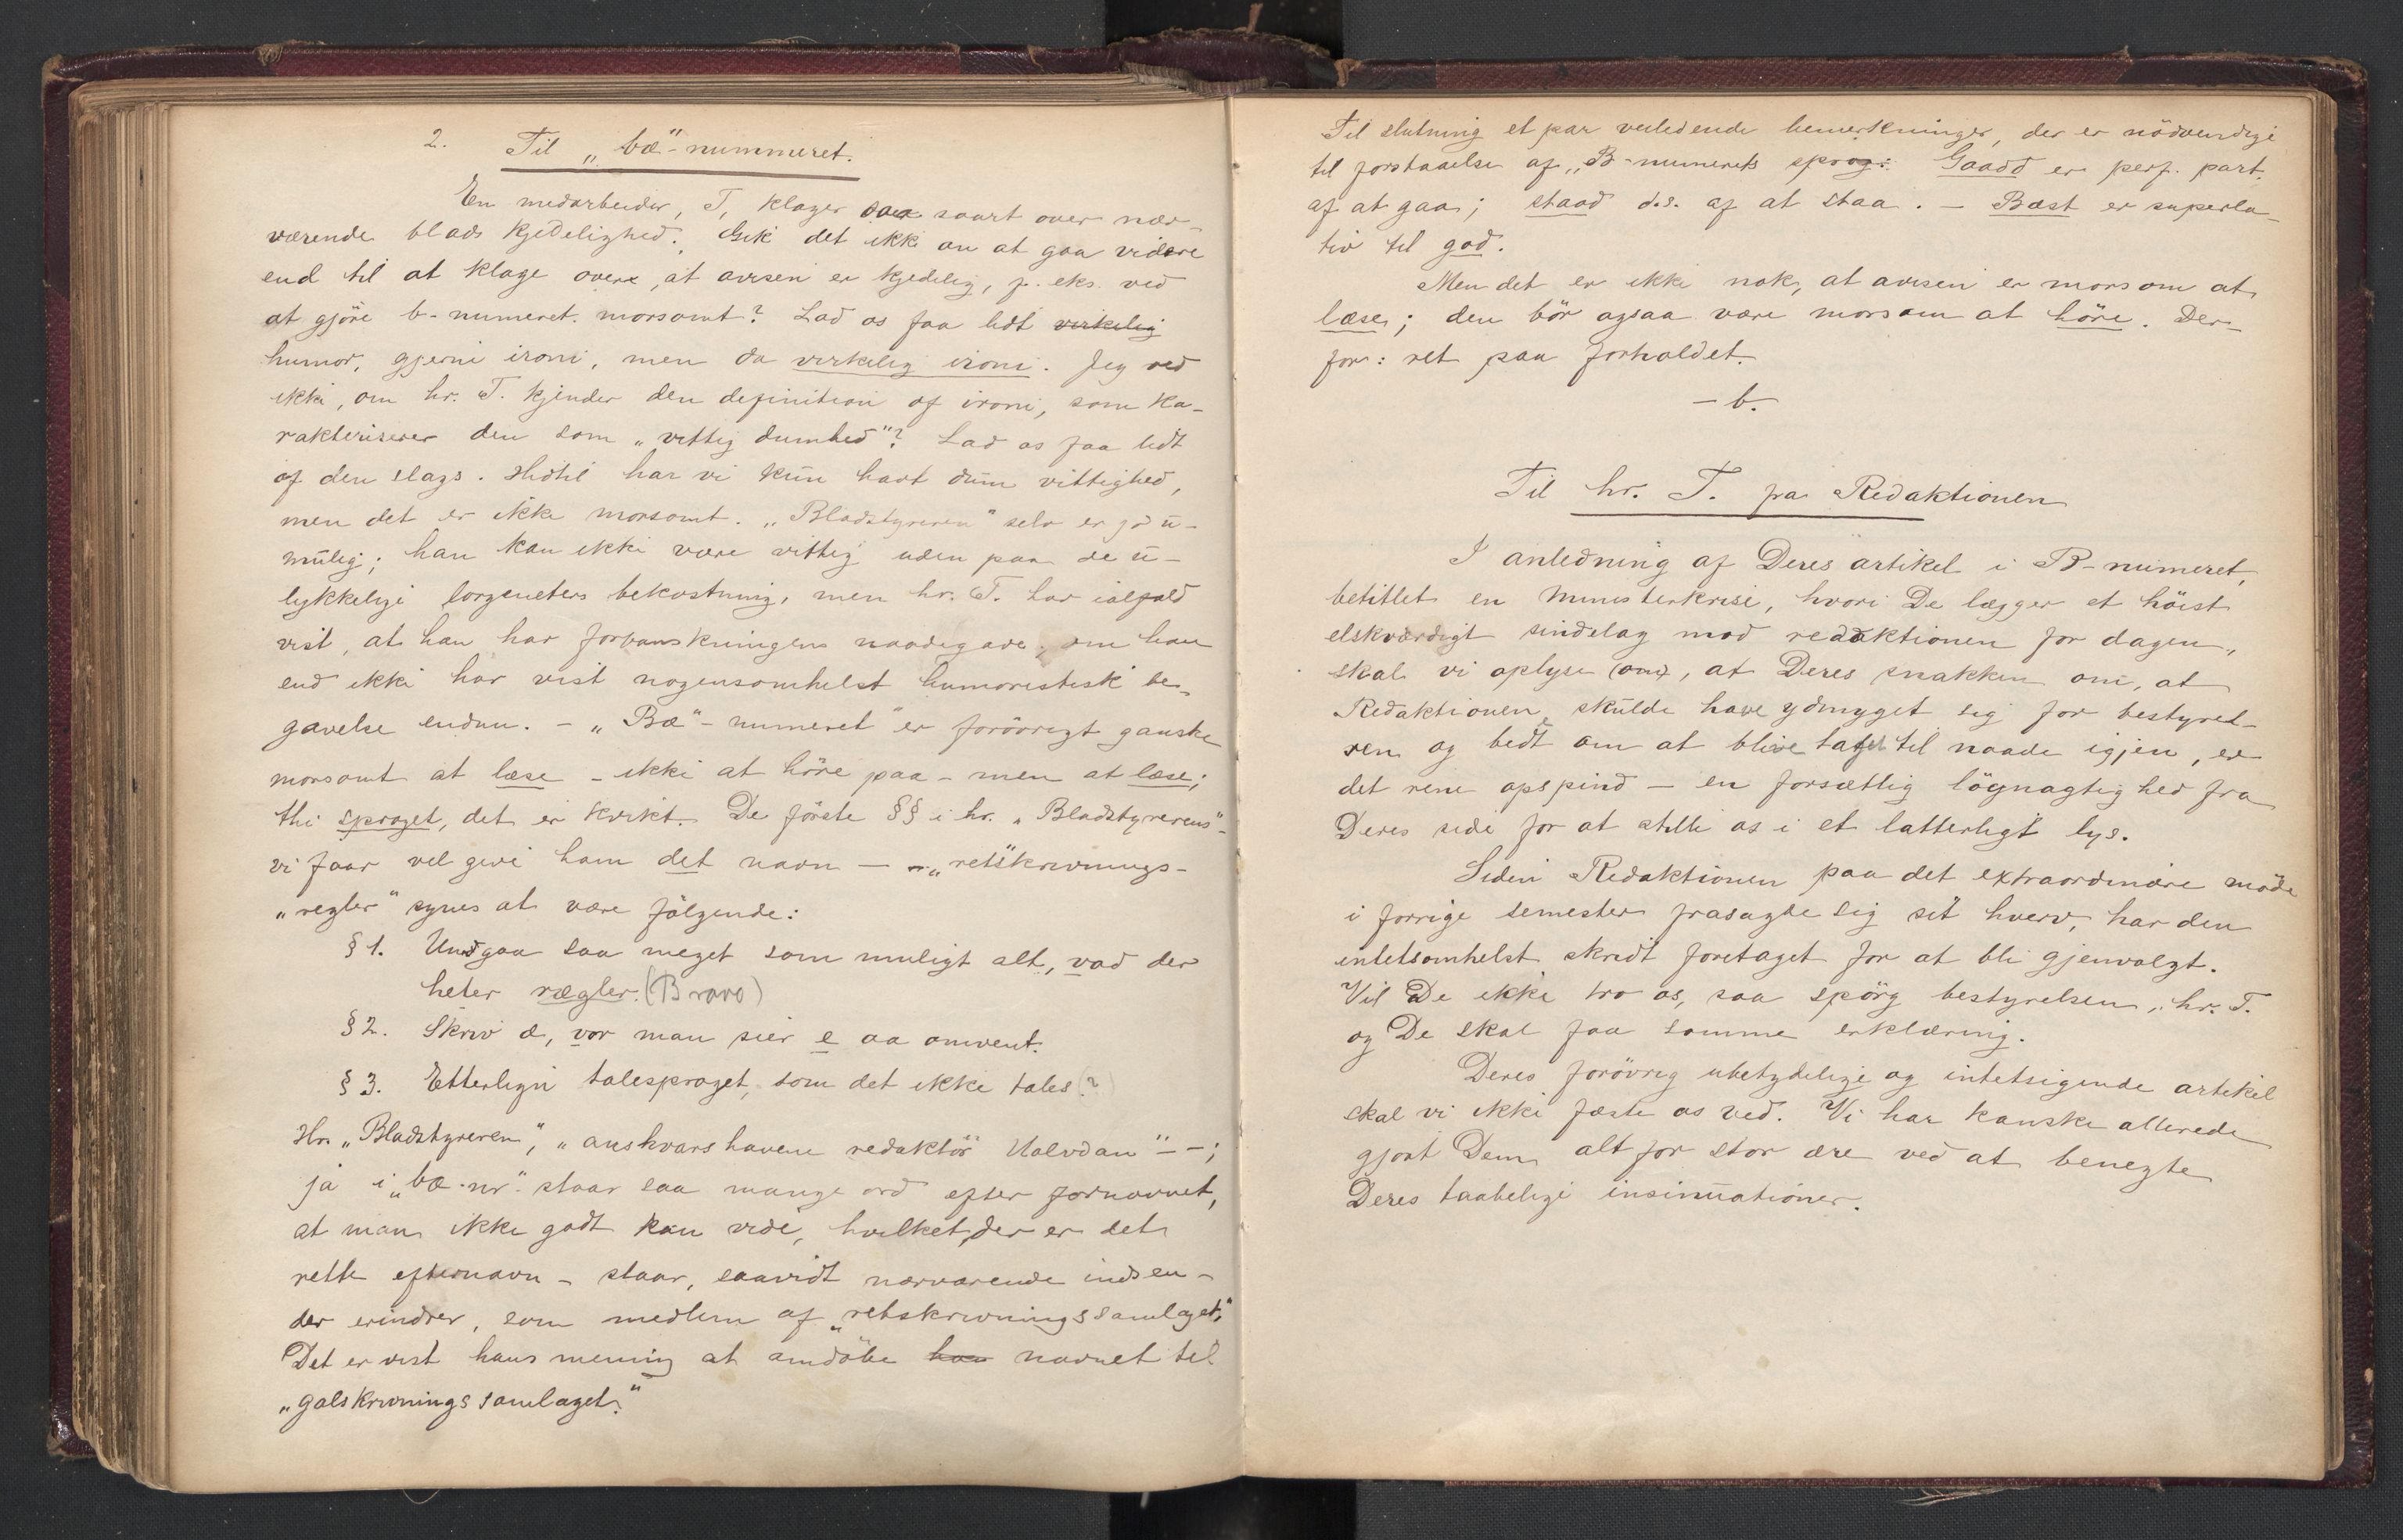 2. Til „bæ"-nummeret.
En medarbeider, T, klager saa saart over nær-
værende blads kjedelighed. Gik det ikke an at gaa videre
end til at klage over, at avisen er kjedelig, f. eks. ved
at gjöre b-numeret morsomt? Lad os faa lidt virkelig
humor, gjerne ironi, men da virkelig ironi. Jeg ved
ikke, om hr. T. kjender den definition af ironi, som ka-
rakteriserer den som „vittig dumhed"? Lad os faa lidt
af den slags. Hidtil har vi kun havt dum vittighed,
men det er ikke morsomt. „Bladstyreren" selv er jo u-
mulig; han kan ikke være vittig uden paa de u-
lykkelige lorgneters bekostning, men hr. T. har ialfald
vist, at han har forvanskningens naadegave, om han
end ikke har vist nogensomhelst humoristisk be-
gavelse endnu. – „Bæ"-numeret er forövrigt ganske
morsomt at læse – ikke at höre paa – men at læse;
thi sproget, det er kvikt. De förste §§ i hr. „Bladstyrerens"-
vi faar vel give ham det navn — „retskrivnings-
„regler" synes at være fölgende:
§ 1. Undgaa saa meget som muligt alt, vad der
heter rægler. (Bravo)
§ 2. Skriv æ, vor man sier e aa omvent.
§ 3. Etterlign talesproget, som det ikke tales (?)
Hr. „Bladstyreren", „anskvarshavene redaktör Halvdan" – –;
ja i „bæ-nr" staar saa mange ord efter fornavnet,
at man ikke godt kan vide, hvilket der er det
rette efternavn – staar, saavidt nærværende indsen-
der erindrer, som medlem af „retskrivningssamlaget".
Det er vist hans mening at omdöbe han navnet til
„galskrivningssamlaget."
Til slutning et par veiledende bemerkninger, der er nödvendige
til forstaaelse af „B-numerets sprog: Gaadd er perf. part.
af at gaa; staad d.s. af at staa. – Bæst er superla-
tiv til god.
Men det er ikke nok, at avisen er morsom at
læse; den bör ogsaa være morsom at höre. Der-
for: ret paa forholdet.
– b.
Til hr. T. fra Redaktionen
I anledning af Deres artikel i B-numeret,
betitlet en Ministerkrise, hvori De lægger et höist
elskværdigt sindelag mod redaktionen for dagen,
skal vi oplyse (om), at Deres snakken om, at
Redaktionen skulde have ydmyget sig for bestyrel-
sen og bedt om at blive taget til naade igjen, er
det rene opspind – en forsætlig lögnagtighed fra
Deres side for at stille os i et latterligt lys.
Siden Redaktionen paa det extraordinære möde
i forrige semester frasagde sig sit hverv, har den
intetsomhelst skridt foretaget for at bli gjenvalgt.
Vil De ikke tro os, saa spörg bestyrelsen, hr. T.
og De skal faa samme erklæring.
Deres forövrig ubetydelige og intetsigende artikel
skal vi ikke fæste os ved. Vi har kanske allerede
gjort Dem alt for stor ære ved at benegte
Deres taabelige insinuationer.